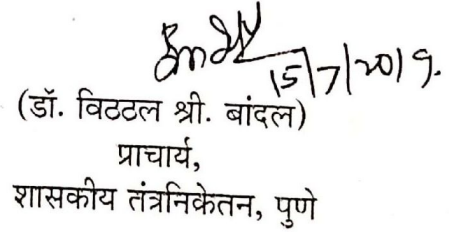 15/7/2019.
(डॉ. विठठल श्री. बांदल)
प्राचार्य,
शासकीय तंत्रनिकेतन, पुणे